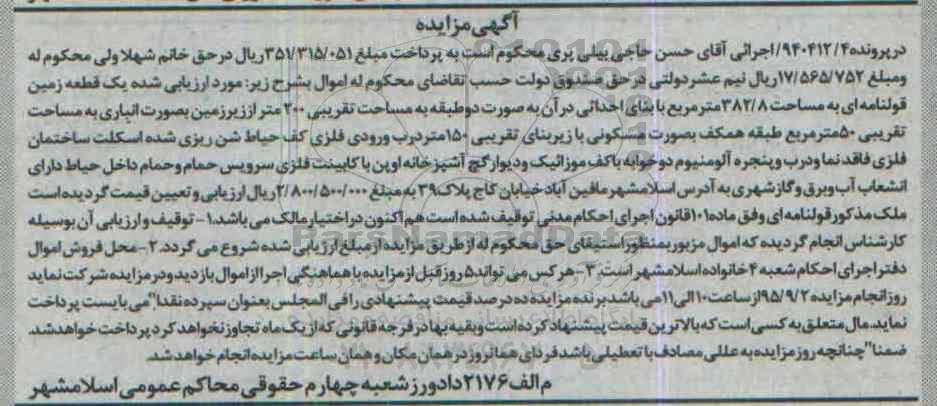 آگهی مزایده
در پرونده ۹۴۰۴۱۲/۴ اجرائی آقای حسن حاجی بیلی پری محکوم است به پرداخت مبلغ ۳۵۱/۳۱۵/۰۵۱ ریال در حق خانم شهلا ولی محکوم له
ومبلغ ۱۷/۵۶۵/۷۵۲ ریال نیم عشر دولتی در حق صندوق دولت حسب تقاضای محکوم له اموال بشرح زیر: مورد ارزیابی شده یک قطعه زمین
قولنامه ای به مساحت ۳۸۲/۸ متر مربع با بنای احداثی در آن به صورت دو طبقه به مساحت تقریبی ۲۰۰ متر از زیرزمین بصورت انباری به مساحت
تقریبی ۵۰ متر مربع طبقه همکف بصورت مسکونی با زیربنای تقریبی ۱۵۰ متر درب ورودی فلزی کف حیاط شن ریزی شده اسکلت ساختمان
فلزی فاقد نما و درب و پنجره آلومنیوم دوخوابه با کف موزائیک و دیوار گچ آشپزخانه اوپن با کابینت فلزی سرویس حمام و حمام داخل حیاط دارای
انشعاب آب و برق و گاز شهری به آدرس اسلامشهر مافین آباد خیابان کاج پلاک ۳۹ به مبلغ ۲/۸۰۰/۵۰۰/۰۰۰ ریال ارزیابی و تعیین قیمت گردیده است
ملک مذکور قولنامه ای وفق ماده ۱۰۱ قانون اجرای احکام مدنی توقیف شده است هم اکنون در اختیار مالک می باشد. ۱- توقیف و ارزیابی آن بوسیله
کارشناس انجام گردیده که اموال مزبور بمنظور استیفای حق محکوم له از طریق مزایده از مبلغ ارزیابی شده شروع می گردد. ۲- محل فروش اموال
دفتر اجرای احکام شعبه ۴ خانواده اسلامشهر است. ۳- هر کس می تواند ۵ روز قبل از مزایده با هماهنگی اجرا از اموال بازدید و در مزایده شرکت نماید
روز انجام مزایده ۹۵/۹/۲ از ساعت ۱۰ الی ۱۱ می باشد برنده مزایده ده درصد قیمت پیشنهادی را فی المجلس بعنوان سپرده نقدا" می بایست پرداخت
نماید. مال متعلق به کسی است که بالاترین قیمت پیشنهاد کرده است و بقیه بها در فرجه قانونی که از یک ماه تجاوز نخواهد کرد پرداخت خواهد شد.
ضمنا" چنانچه روز مزایده به عللی مصادف با تعطیلی باشد فردای همانروز در همان مکان و همان ساعت مزایده انجام خواهد شد.
م الف ۲۱۷۶ دادورز شعبه چهارم حقوقی محاکم عمومی اسلامشهر